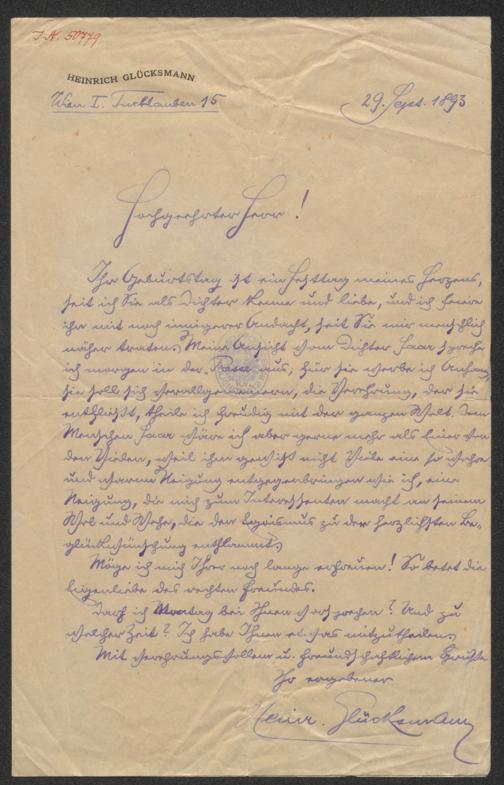 I.N. 50779
HEINRICH GLÜCKSMANN.
Wien I. Tuchlauben 15
29. Sept. 1893
Hochgeehrter Herr!
Ihr Geburtstag ist ein Festtag meines Herzens,
seit ich Sie als Dichter kenne und liebe, und ich feiere
ihn mit noch innigerer Andacht, seit Sie mir menschlich
näher traten. Meine Ansicht vom Dichter Saar spreche
ich morgen in der "Presse" aus; für sie werbe ich Anhang,
sie soll sich verallgemeinern, die Verehrung, der sie
entfließt, theile ich freudig mit der ganzen Welt. Dem
Menschen Saar wäre ich aber gerne mehr als Einer von
den Vielen, weil ihm gewiß nicht Viele eine so wahre
und warme Neigung entgegenbringen wie ich, eine
Neigung, die mich zum Interessenten macht an seinem
Wol und Wehe, die den Egoismus zu der herzlichsten Be-
glückwünschung entflammt.
Möge ich mich Ihrer noch lange erfreuen! So betet die
Eigenliebe des rechten Freundes.
Darf ich Montag bei Ihnen vorsprechen? Und zu
welcher Zeit? Ich habe Ihnen etwas mitzutheilen.
Mit verehrungsvollem u. freundschaftlichem Gruße
Ihr ergebener
Heinr. Glücksmann